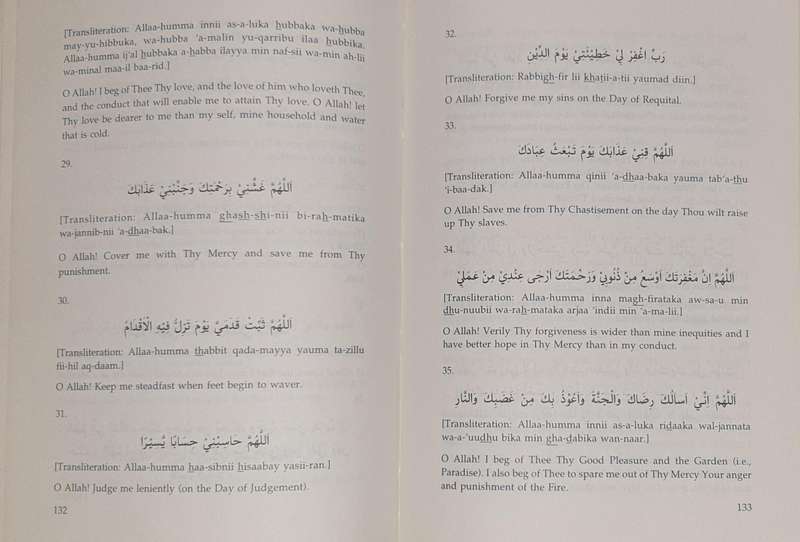 [Transliteration: Allaa-humma innii as-a-luka hubbaka wa-hubba
may-yu-hibbuka, wa-hubba 'a-malin yu-qarribu ilaa hubbika.
Allaa-humma ij'al hubbaka a-habba ilayya min naf-sii wa-min ah-lii
wa-minal maa-il baa-rid.]
O Allah! I beg of Thee Thy love, and the love of him who loveth Thee,
and the conduct that will enable me to attain Thy love. O Allah! let
Thy love be dearer to me than my self, mine household and water
that is cold.
29.
اَللّٰهُمَّ غَشِّنِيْ بِرَحْمَتِكَ وَجَنِّبْنِيْ عَذَابَكَ
[Transliteration: Allaa-humma ghash-shi-nii bi-rah-matika
wa-jannib-nii 'a-dhaa-bak.]
O Allah! Cover me with Thy Mercy and save me from Thy
punishment.
30.
اَللّٰهُمَّ ثَبِّتْ قَدَمَيَّ يَوْمَ تَزِلُّ فِيْهِ الْاَقْدَامُ
[Transliteration: Allaa-humma thabbit qada-mayya yauma ta-zillu
fii-hil aq-daam.]
O Allah! Keep me steadfast when feet begin to waver.
31.
اَللّٰهُمَّ حَاسِبْنِيْ حِسَابًا يَّسِيْرًا
[Transliteration: Allaa-humma haa-sibnii hisaabay yasii-ran.]
O Allah! Judge me leniently (on the Day of Judgement).
132
32.
رَبِّ اغْفِرْ لِيْ خَطِيْئَتِيْ يَوْمَ الدِّيْنِ
[Transliteration: Rabbigh-fir lii khatii-a-tii yaumad diin.]
O Allah! Forgive me my sins on the Day of Requital.
33.
اَللّٰهُمَّ قِنِيْ عَذَابَكَ يَوْمَ تَبْعَثُ عِبَادَكَ
[Transliteration: Allaa-humma qinii 'a-dhaa-baka yauma tab'a-thu
'i-baa-dak.]
O Allah! Save me from Thy Chastisement on the day Thou wilt raise
up Thy slaves.
34.
اَللّٰهُمَّ اِنَّ مَغْفِرَتَكَ اَوْسَعُ مِنْ ذُنُوْبِيْ وَرَحْمَتَكَ اَرْجٰى عِنْدِيْ مِنْ عَمَلِيْ
[Transliteration: Allaa-humma inna magh-firataka aw-sa-u min
dhu-nuubii wa-rah-mataka arjaa 'indii min 'a-ma-lii.]
O Allah! Verily Thy forgiveness is wider than mine inequities and I
have better hope in Thy Mercy than in my conduct.
35.
اَللّٰهُمَّ اِنِّيْ اَسْاَلُكَ رِضَاكَ وَالْجَنَّةَ وَاَعُوْذُ بِكَ مِنْ غَضَبِكَ وَالنَّارِ
[Transliteration: Allaa-humma innii as-a-luka ridaaka wal-jannata
wa-a-'uudhu bika min gha-dabika wan-naar.]
O Allah! I beg of Thee Thy Good Pleasure and the Garden (i.e.,
Paradise). I also beg of Thee to spare me out of Thy Mercy Your anger
and punishment of the Fire.
133